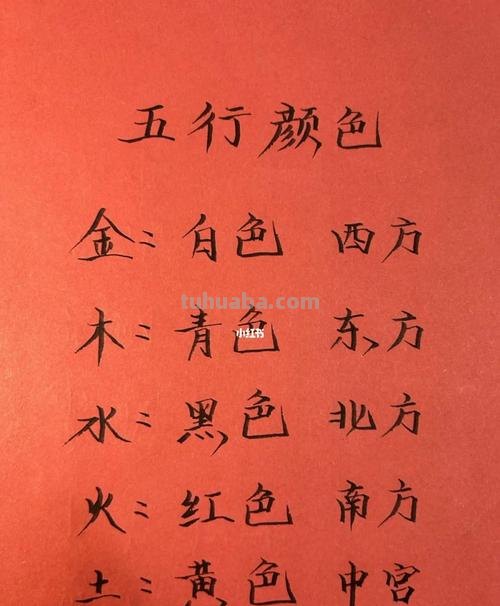 五行颜色
金：白色 西方
tuhuaba.com
木：青色 东方
小红书
水：黑色 北方
火：红色 南方
土：黄色 中宫